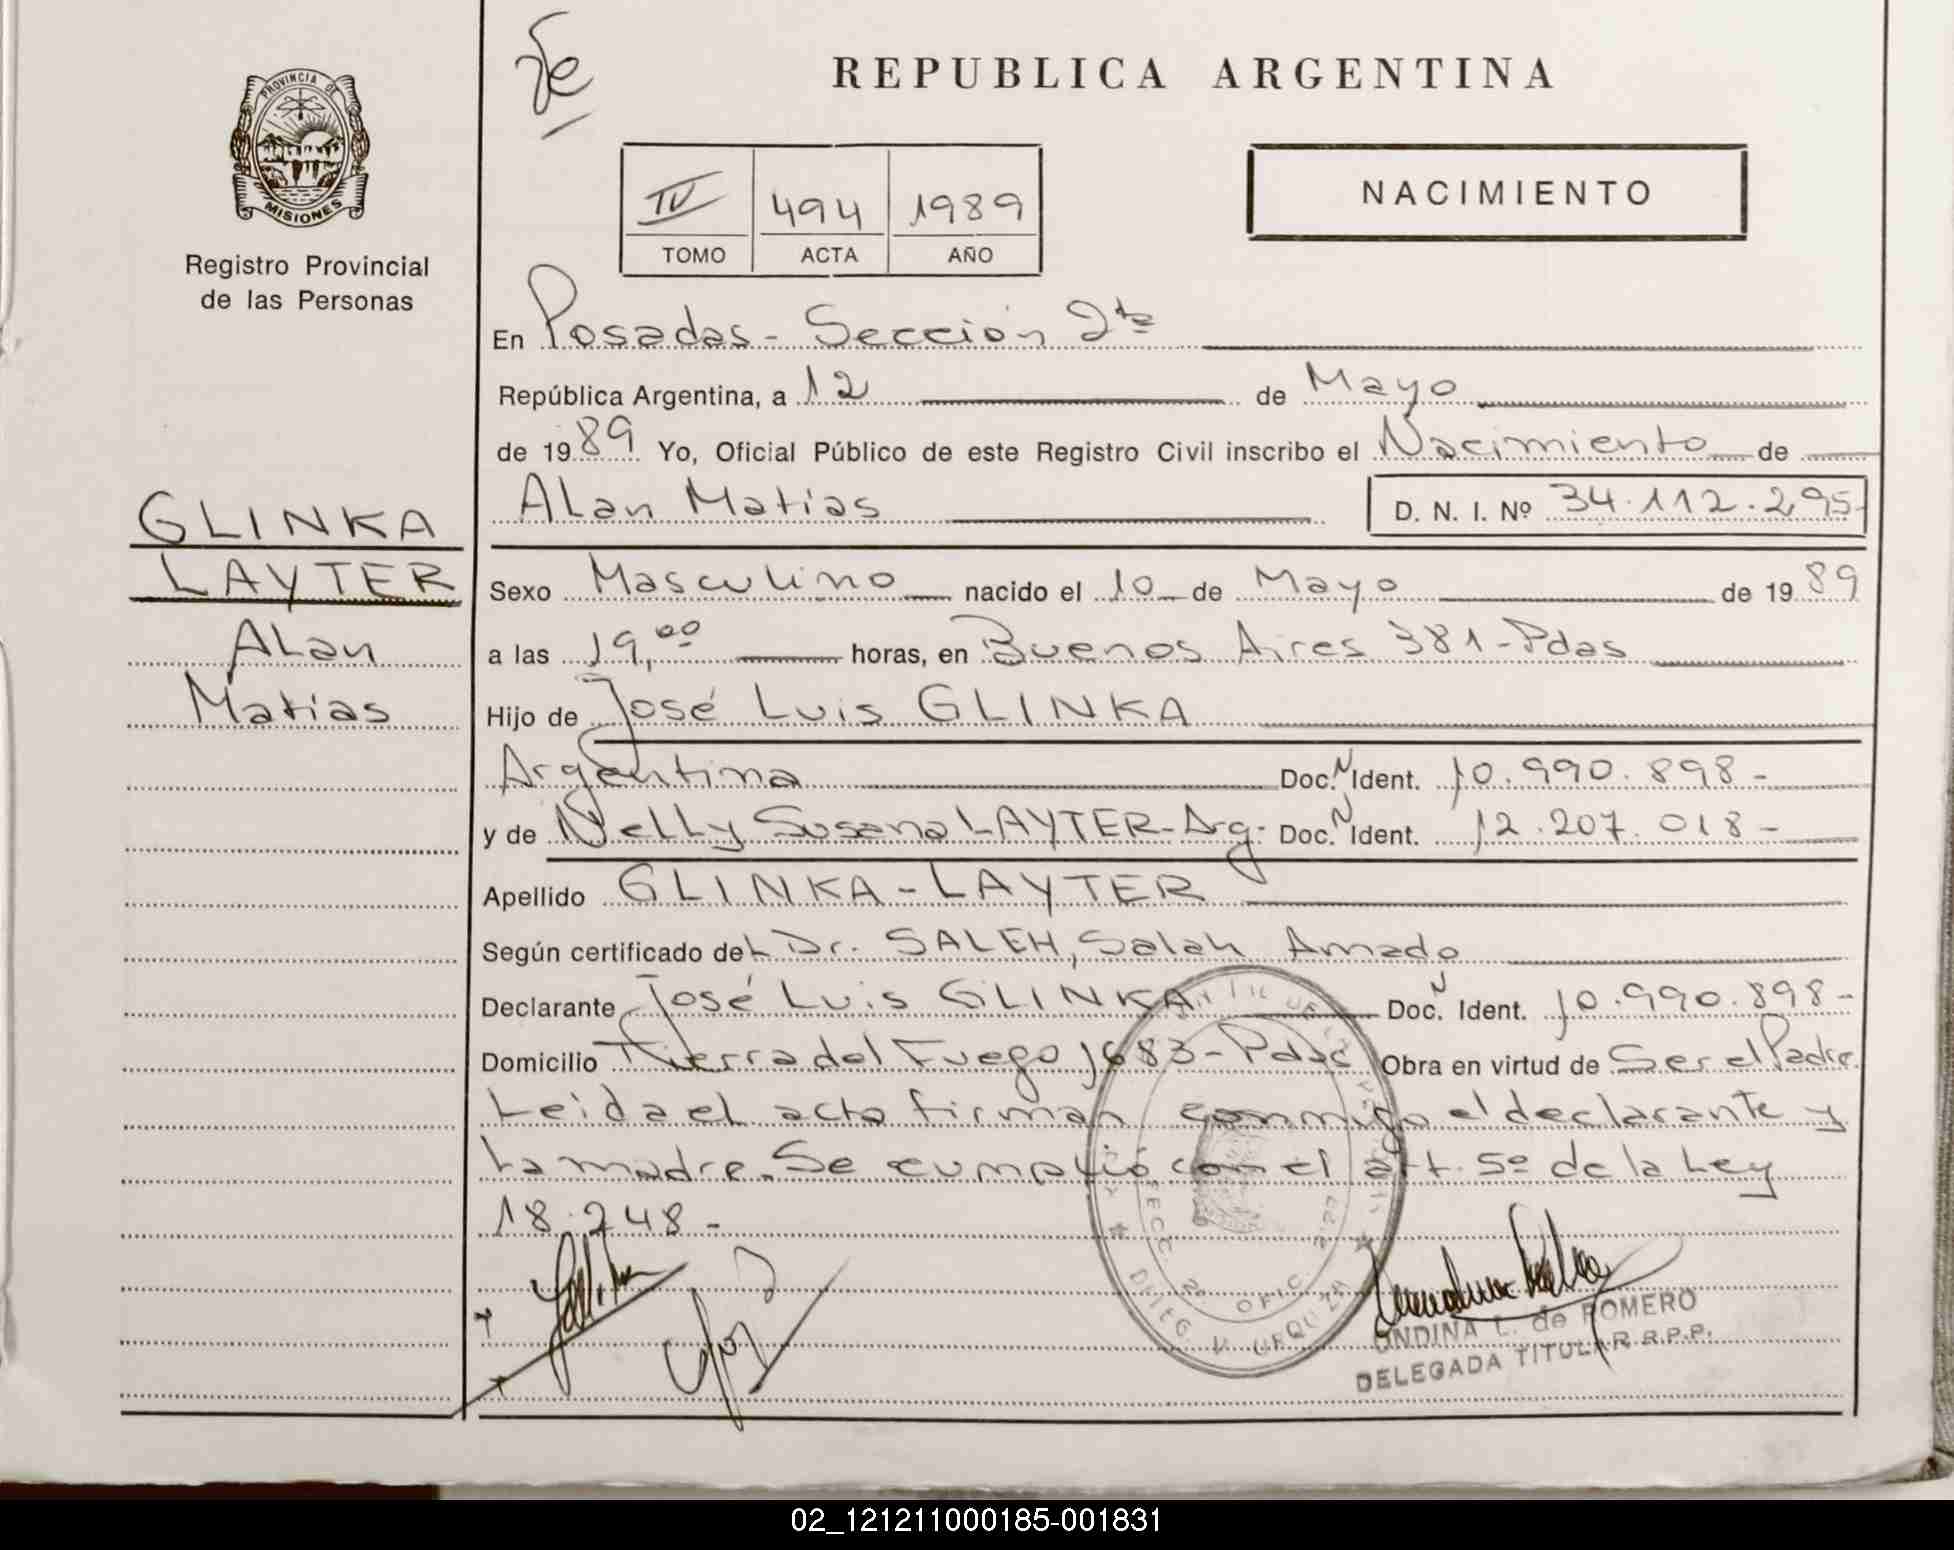 PROVINCIA DE
MISIONES
Registro Provincial
de las Personas
GLINKA
LAYTER
ALan
Matías
REPUBLICA ARGENTINA
IV 494 1989
TOMO ACTA AÑO
NACIMIENTO
En Posadas - Sección 2da
República Argentina, a 12 de Mayo
de 1989 Yo, Oficial Público de este Registro Civil inscribo el Nacimiento de
ALan Matías D. N. I. Nº 34.112.295-
Sexo Masculino nacido el 10 de Mayo de 1989
a las 19,00 horas, en Buenos Aires 381-Pdas
Hijo de José Luis GLINKA
Argentina Doc. N Ident. 10.990.898-
y de NeLLy Susana LAYTER-Arg. Doc. N Ident. 12.207.018-
Apellido GLINKA-LAYTER
Según certificado deL Dr. SALEH, Salah Amado
Declarante José Luis GLINKA Doc. N Ident. 10.990.898-
Domicilio Tierra del Fuego 1683-Pdas Obra en virtud de Ser el Padre
Leida el acta firman conmigo el declarante y
La madre. Se cumpLió con el art. 5º de la Ley
18.248-
SECC. 2º OFIC.
DELEG. V. URQUIZA
ONDINA L. de ROMERO
DELEGADA TITULAR R.P.P.
02_121211000185-001831